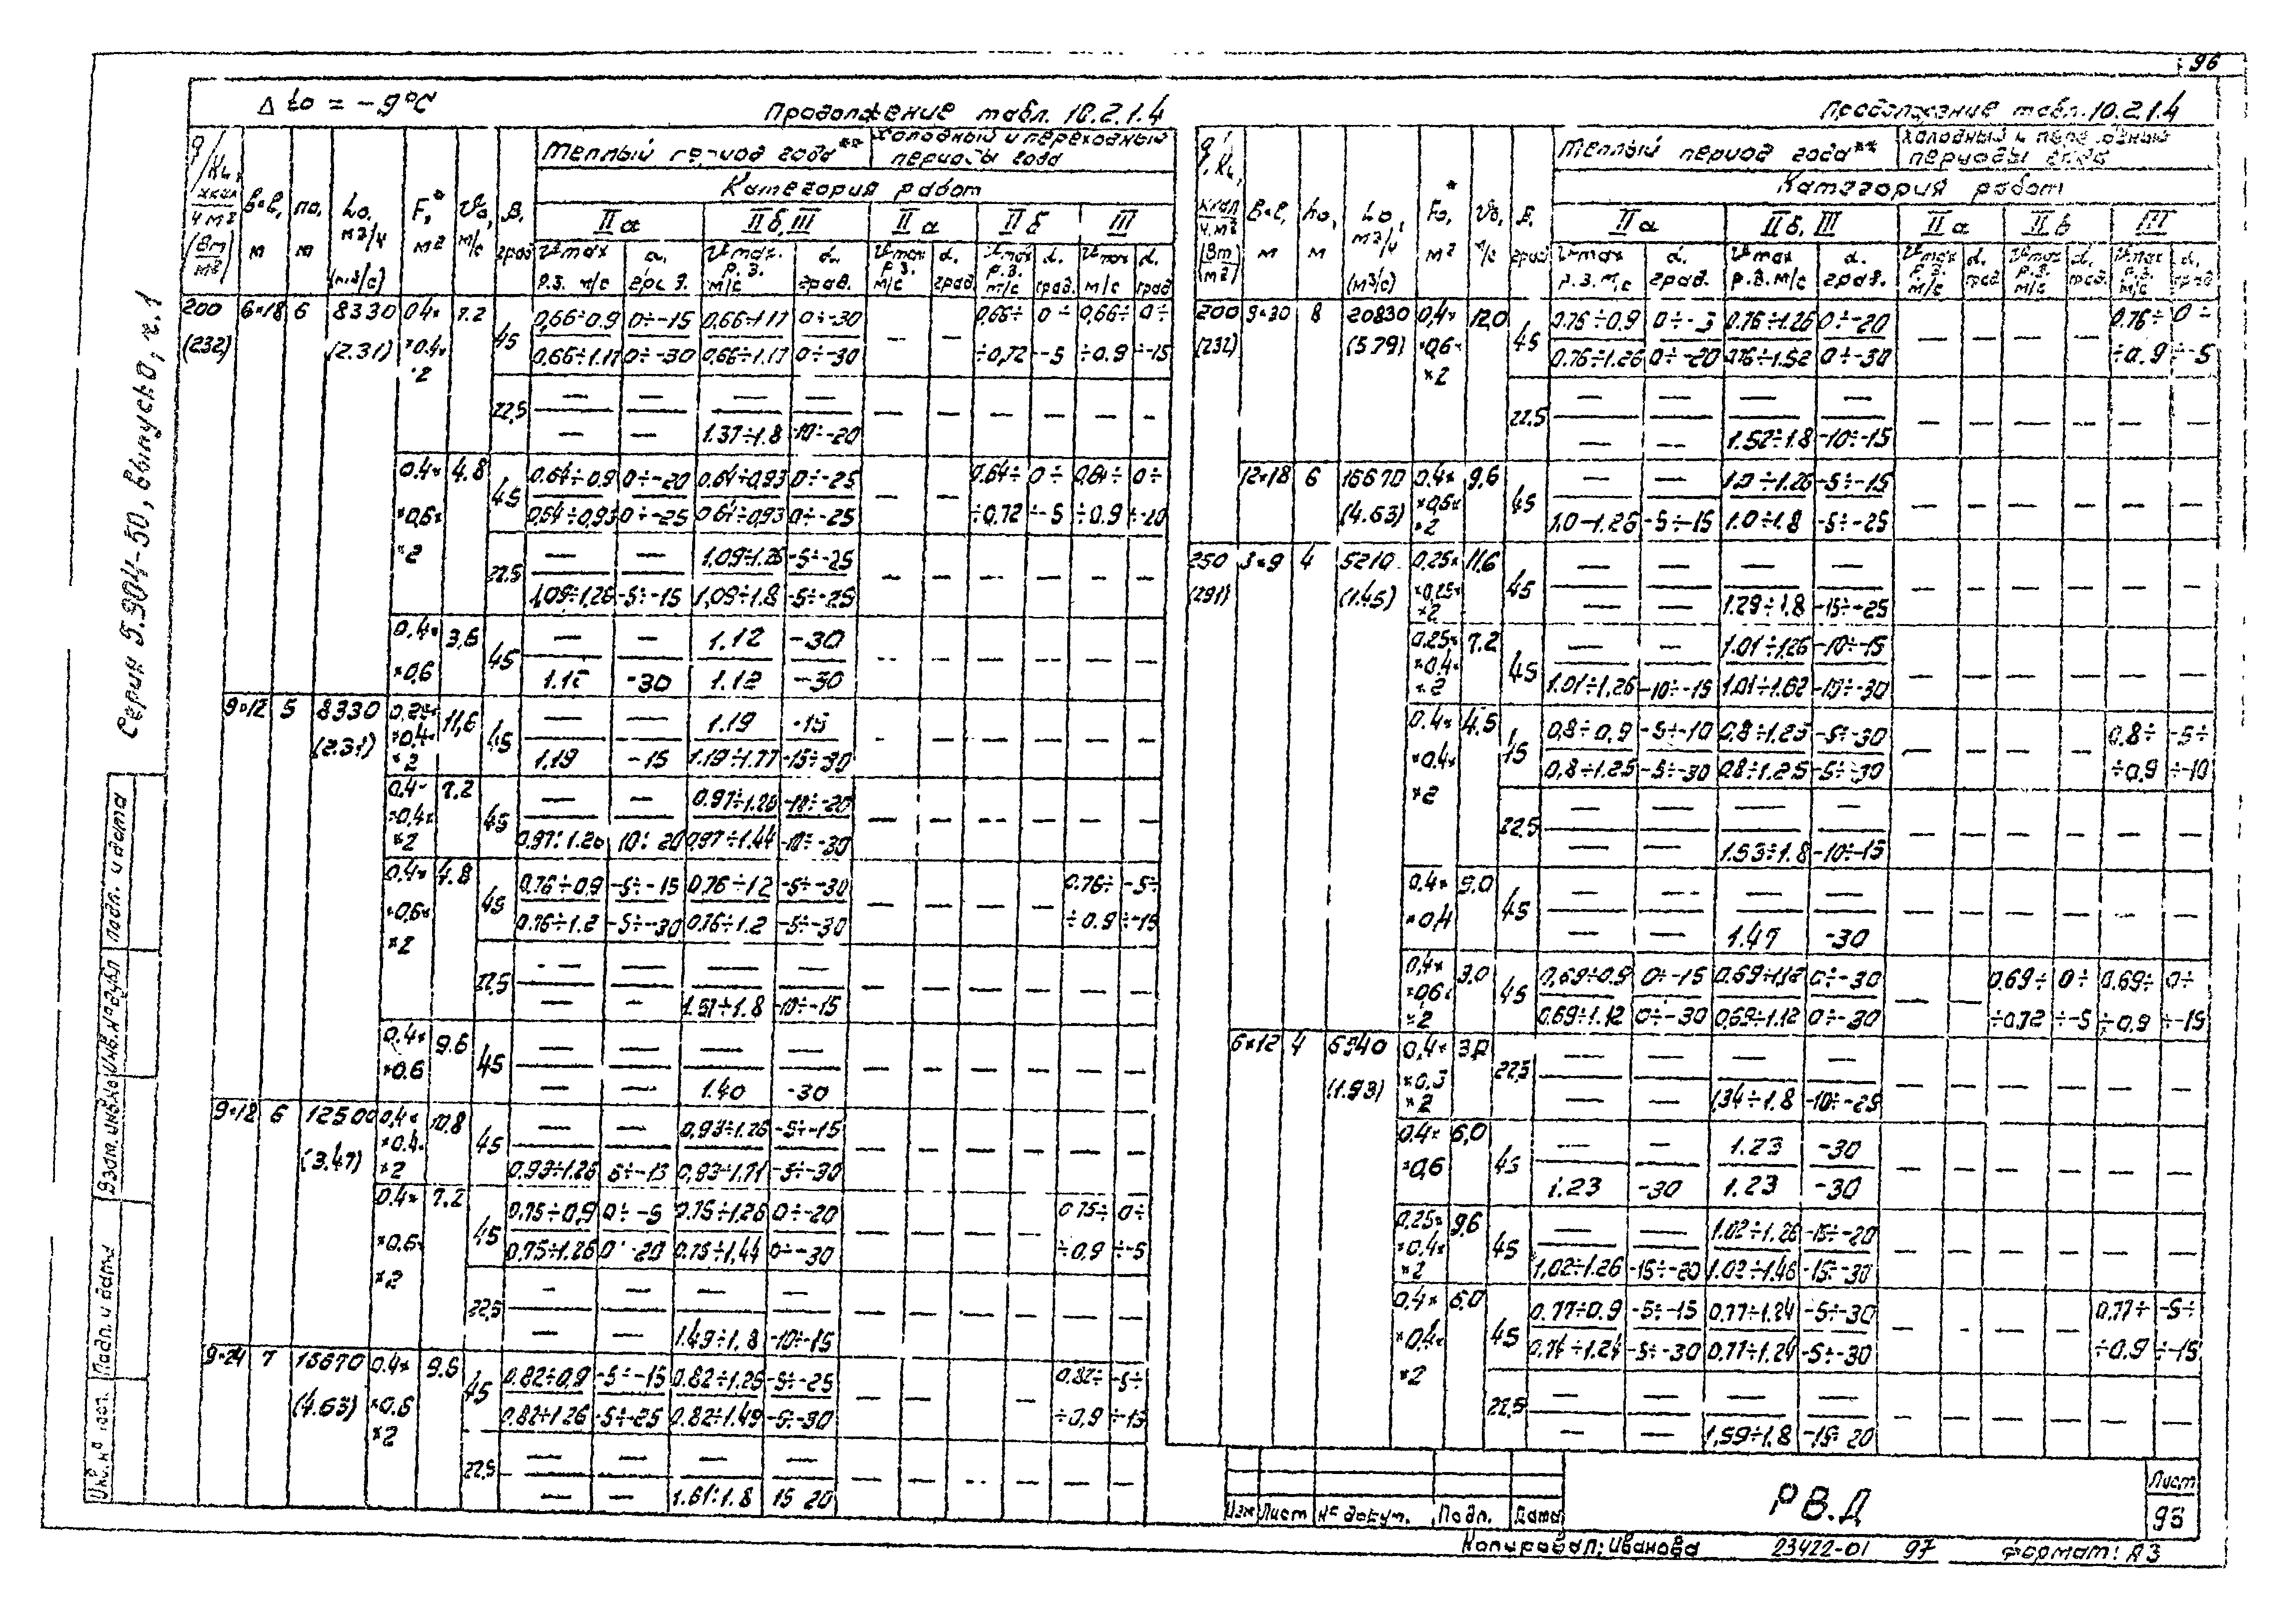 96
Δ to = -9°C
Продолжение табл. 10.2.1.4
q/KL, ккал/ч м² (Вт/м²) | в×l, м | ho, м | Lo, м³/ч (м³/с) | Fo,* м² | vo, м/с | β, град | Теплый период года** | Холодный и переходный периоды года
Категория работ
IIа | IIб, III | IIа | IIб | III
200 (232) | 6×18 | 6 | 8330 (2.31) | 0.4× ×0.4× ×2 | 7.2 | 45 | 0,66÷0.9 | 0÷-15 | 0.66÷1.17 | 0÷-30 | — | — | 0,66÷ | 0÷ | 0,66÷ | 0÷
0,66÷1.17 | 0÷-30 | 0,66÷1.17 | 0÷-30 | ÷0,72 | ÷-5 | ÷0.9 | ÷-15
22,5 | — | — | — | — | — | — | — | — | — | —
— | — | 1.37÷1.8 | -10÷-20
0.4× ×0,6× ×2 | 4.8 | 45 | 0.64÷0.9 | 0÷-20 | 0.64÷0,93 | 0÷-25 | — | — | 0.64÷ | 0÷ | 0.64÷ | 0÷
0,64÷0,93 | 0÷-25 | 0.64÷0.93 | 0÷-25 | ÷0.72 | ÷-5 | ÷0.9 | ÷-20
22,5 | — | — | 1.09÷1.26 | -5÷-25 | — | — | — | — | — | —
1,09÷1,26 | -5÷-15 | 1,09÷1.8 | -5÷-25
0.4× ×0,6 | 3,6 | 45 | — | — | 1.12 | -30 | — | — | — | — | — | —
1.12 | -30 | 1.12 | -30
9×12 | 5 | 8330 (2.31) | 0,25× ×0.4× ×2 | 11,6 | 45 | — | — | 1.19 | -15 | — | — | — | — | — | —
1.19 | -15 | 1.19÷1.77 | -15÷-30
0.4× ×0,4× ×2 | 7.2 | 45 | — | — | 0.97÷1.26 | -10÷-20 | — | — | — | — | — | —
0.97÷1.26 | 10÷20 | 0,97÷1.44 | -10÷-30
0.4× ×0,6× ×2 | 4.8 | 45 | 0.76÷0,9 | -5÷-15 | 0.76÷1.2 | -5÷-30 | — | — | — | — | 0.76÷ | -5÷
0.76÷1.2 | -5÷-30 | 0.76÷1.2 | -5÷-30 | ÷0.9 | ÷-15
22,5 | — | — | — | — | — | — | — | — | — | —
— | — | 1.51÷1.8 | -10÷-15
0.4× ×0.6 | 9.6 | 45 | — | — | — | — | — | — | — | — | — | —
— | — | 1.40 | -30
9×18 | 6 | 12500 (3.47) | 0,4× ×0.4× ×2 | 10.8 | 45 | — | — | 0,93÷1.26 | -5÷-15 | — | — | — | — | — | —
0.93÷1.26 | 5÷-15 | 0,93÷1.71 | -5÷-30
0.4× ×0.6× ×2 | 7.2 | 45 | 0.75÷0,9 | 0÷-5 | 0.75÷1.26 | 0÷-20 | — | — | — | — | 0.75÷ | 0÷
0.75÷1.26 | 0÷20 | 0.75÷1,44 | 0÷-30 | ÷0.9 | ÷-5
22,5 | — | — | — | — | — | — | — | — | — | —
— | — | 1.49÷1.8 | -10÷-15
9×24 | 7 | 16670 (4.63) | 0.4× ×0.6 ×2 | 9.6 | 45 | 0.82÷0,9 | -5÷-15 | 0.82÷1.26 | -5÷-25 | — | — | — | — | 0.82÷ | -5÷
0.82÷1.26 | -5÷-25 | 0.82÷1.49 | -5÷-30 | ÷0,9 | ÷-15
22,5 | — | — | — | — | — | — | — | — | — | —
— | — | 1.61÷1.8 | 15 20
Продолжение табл. 10.2.1.4
q/KL, ккал/ч.м² (Вт/м²) | в×l, м | ho, м | Lo, м³/ч (м³/с) | Fo,* м² | vo, м/с | β, град | Теплый период года** | Холодный и переходный периоды года
Категория работ
IIа | IIб, III | IIа | IIб | III
200 (232) | 9×30 | 8 | 20830 (5.79) | 0,4× ×0,6× ×2 | 12,0 | 45 | 0.76÷0.9 | 0÷- | 0.76÷1.26 | 0÷-20 | — | — | — | — | 0.76÷ | 0÷
0.76÷1.26 | 0÷-20 | 0.76÷1.52 | 0÷-30 | ÷0.9 | ÷-5
22.5 | — | — | — | — | — | — | — | — | — | —
— | — | 1.52÷1.8 | -10÷-15
12×18 | 6 | 16670 (4.63) | 0.4× ×0,6× ×2 | 9,6 | 45 | — | — | 1.0÷1.26 | -5÷-15 | — | — | — | — | — | —
1.0-1.26 | -5÷-15 | 1.0÷1.8 | -5÷-25
250 (291) | 3×9 | 4 | 5210 (1.45) | 0,25× ×0,25× ×2 | 11,6 | 45 | — | — | — | — | — | — | — | — | — | —
— | — | 1.29÷1.8 | -15÷-25
0.25× ×0,4× ×2 | 7.2 | 45 | — | — | 1.01÷1.26 | -10÷-15 | — | — | — | — | — | —
1.01÷1.26 | -10÷-15 | 1.01÷1.62 | -10÷-30
0.4× ×0.4× ×2 | 4.5 | 45 | 0,8÷0,9 | -5÷-10 | 0,8÷1.25 | -5÷-30 | — | — | — | — | 0,8÷ | -5÷
0,8÷1.25 | -5÷-30 | 0.8÷1.25 | -5÷-30 | ÷0,9 | ÷-10
22.5 | — | — | — | — | — | — | — | — | — | —
— | — | 1.53÷1.8 | -10÷-15
0.4× ×0,4 | 9.0 | 45 | — | — | — | — | — | — | — | — | — | —
— | — | 1.47 | -30
0,4× ×0,6× ×2 | 3.0 | 45 | 0,69÷0.9 | 0÷-15 | 0.69÷1,12 | 0÷-30 | — | — | 0.69÷ | 0÷ | 0,69÷ | 0÷
0.69÷1.12 | 0÷-30 | 0,69÷1.12 | 0÷-30 | ÷0.72 | ÷-5 | ÷0,9 | ÷-15
6×12 | 4 | 6940 (1.93) | 0,4× ×0,3 ×2 | 22,5 | — | — | — | — | — | — | — | — | — | —
— | — | 1,34÷1.8 | -10÷-25
0.4× ×0,6 | 6,0 | 45 | — | — | 1.23 | -30 | — | — | — | — | — | —
1.23 | -30 | 1.23 | -30
0,25× ×0.4× ×2 | 9,6 | 45 | — | — | 1.02÷1.26 | -15÷-20 | — | — | — | — | — | —
1,02÷1.26 | -15÷-20 | 1.02÷1.46 | -15÷-30
0,4× ×0,4× ×2 | 6,0 | 45 | 0.77÷0.9 | -5÷-15 | 0.77÷1.24 | -5÷-30 | — | — | — | — | 0.77÷ | -5÷
0.76÷1.24 | -5÷-30 | 0.77÷1.24 | -5÷-30 | ÷0.9 | ÷-15
22,5 | — | — | — | — | — | — | — | — | — | —
— | — | 1,59÷1.8 | -15÷20
Серия 5.904-50, выпуск 0, ч. 1
Подп. и дата
Инв.№ дубл
Взам. инв.№
Подп. и дата
Инв.№ подл.
Изм Лист № докум. Подп. Дата
РВ.Д
Лист
93
Копировал: Иванова 23422-01 97 Формат: А3